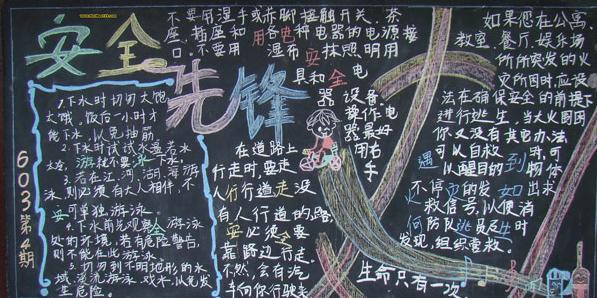 安全
先锋
603第4期
1.下水时切勿太饱
太饿。饭后一小时才
能下水,以免抽筋
2.下水时试试水温若水
太冷,就不要下水。
3.若在江、河、湖、海游
泳,则必须有大人相伴,不
可单独游泳。
4.下水前先观察游泳
处的环境,若有危险警告,
则不能在此游泳
5.切勿到不明地形的水
域漂流游泳、戏水,以免发
生危险。
不要用湿手或赤脚接触开关、茶
座、插座和用各种电器的电源接
口。不要用湿布抹照明用
具和电
器设备。
操作电
器最好
用右
手
在道路上
行走时,要走
人行行道走没
有人行道的路,
必须要
靠路边行走。
不然,会有汽
车向你行驶来
如果您在公寓、
教室、餐厅、娱乐场
所所突发的火
灾所困时,应设
法在确保安全的前提下
进行逃生,当大火围困
你又没有其它办法
可以自救时,可
以醒目的物体
不停的发出求
救信号,以便消
防队员及时
发现,组织营救。
遇到
如何逃生
生命只有一次